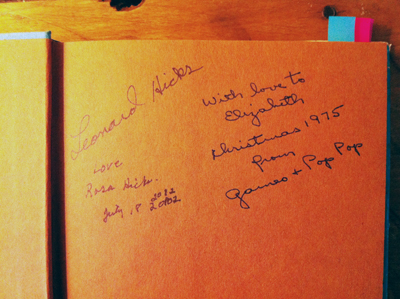 Leonard Hicks
Love
Rosa Hicks.
July, 8
2002
With love to
Elizabeth
Christmas 1975
from
+ Pop Pop